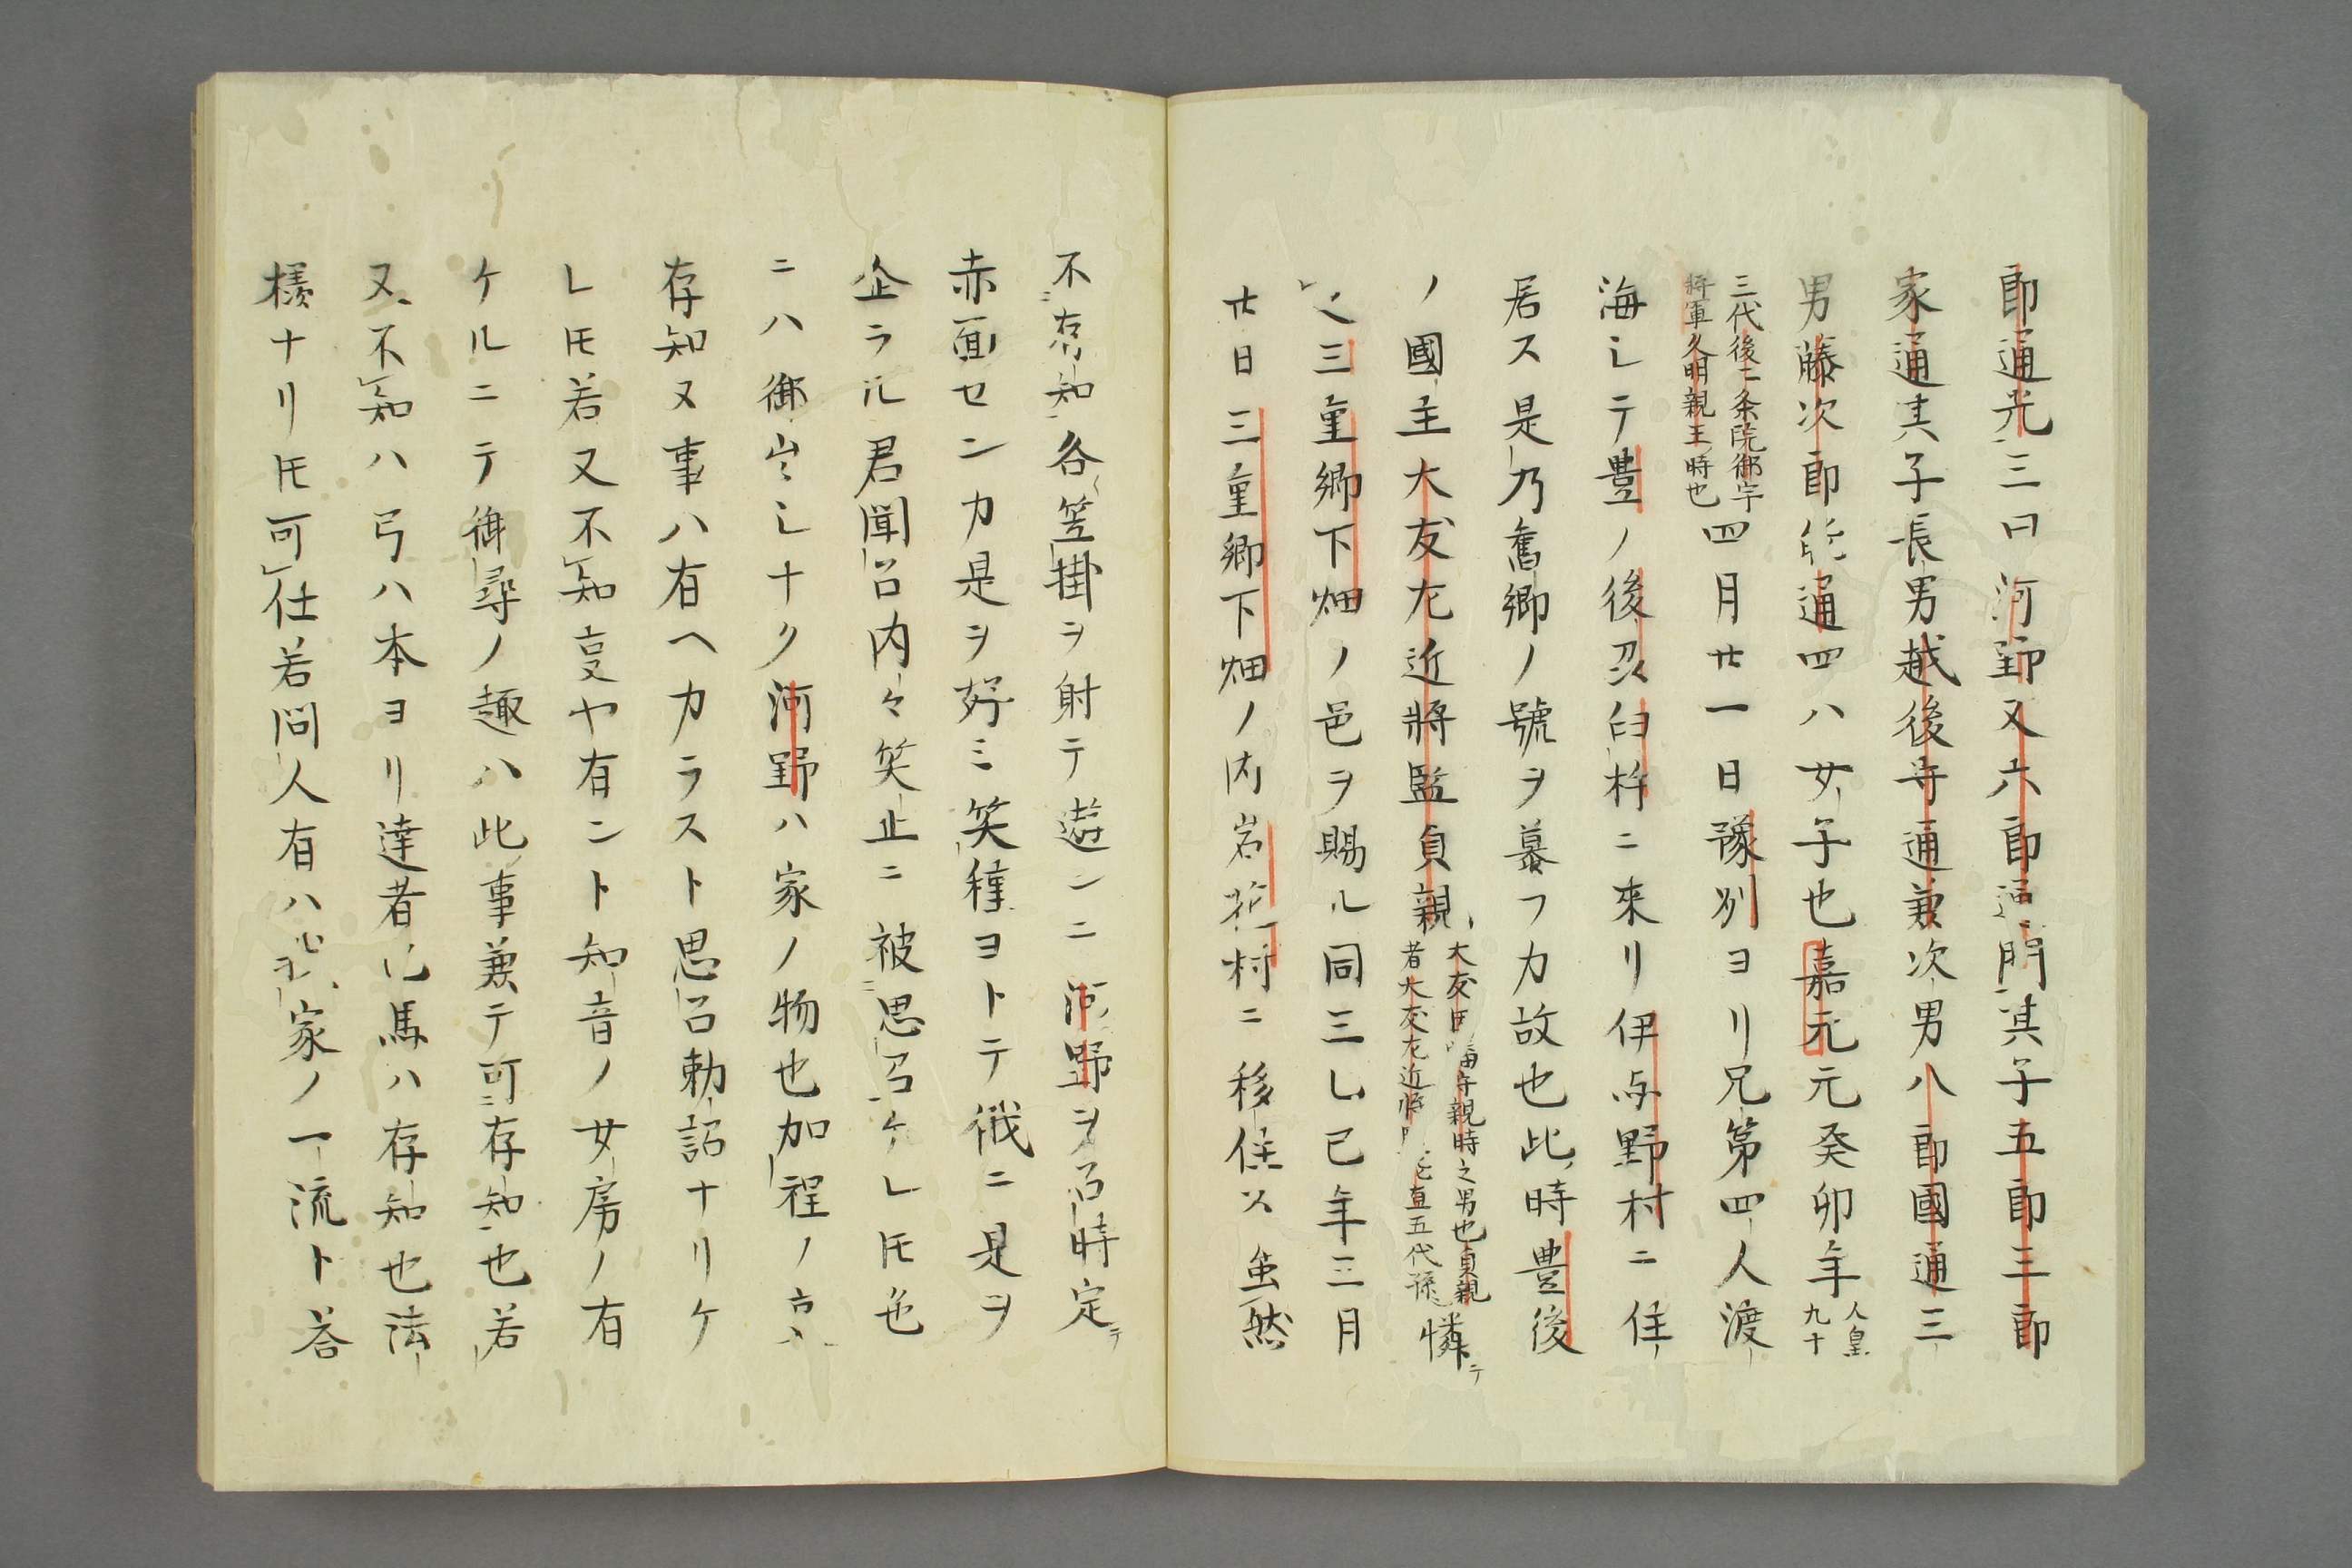 郎通光三曰河野又六郎通門其子五郎三郎
家通其子長男越後守通兼次男八郎國通三
男藤次郎能通四ハ女子也嘉元元癸卯年人皇九十
三代後二条院御宇將軍久明親王時也四月廿一日豫州ヨリ兄第四人渡
海シテ豊ノ後忍臼杵ニ來リ伊与野村ニ住
居ス是乃舊郷ノ號ヲ慕フカ故也此時豊後
ノ國主大友左近將監貞親大友因幡守親時之男也貞親者大友左近將能直五代孫憐テ
之三重郷下畑ノ邑ヲ賜ル同三乚巳年三月
廿日三重郷下畑ノ内岩花村ニ移住ス虽然
不存知各笠掛ヲ射テ遊ンニ河野ヲ召時定テ
赤面センカ是ヲ好ミ笑種ヨトテ俄ニ是ヲ
企ラル君聞召内々笑止ニ被思召ケレ𪜈色
ニハ御出シナク河野ハ家ノ物也加程ノ
存知ヌ事ハ有ヘカラスト思召勅詔ナリケ
レ𪜈若又不知叓ヤ有ント知音ノ女房ノ有
ケルニテ御尋ノ趣ハ此事兼テ可存知也若
又不知ハ弓ハ本ヨリ達者ニ馬ハ存知也法
様ナリ𪜈可仕若問人有ハ家ノ一流ト答